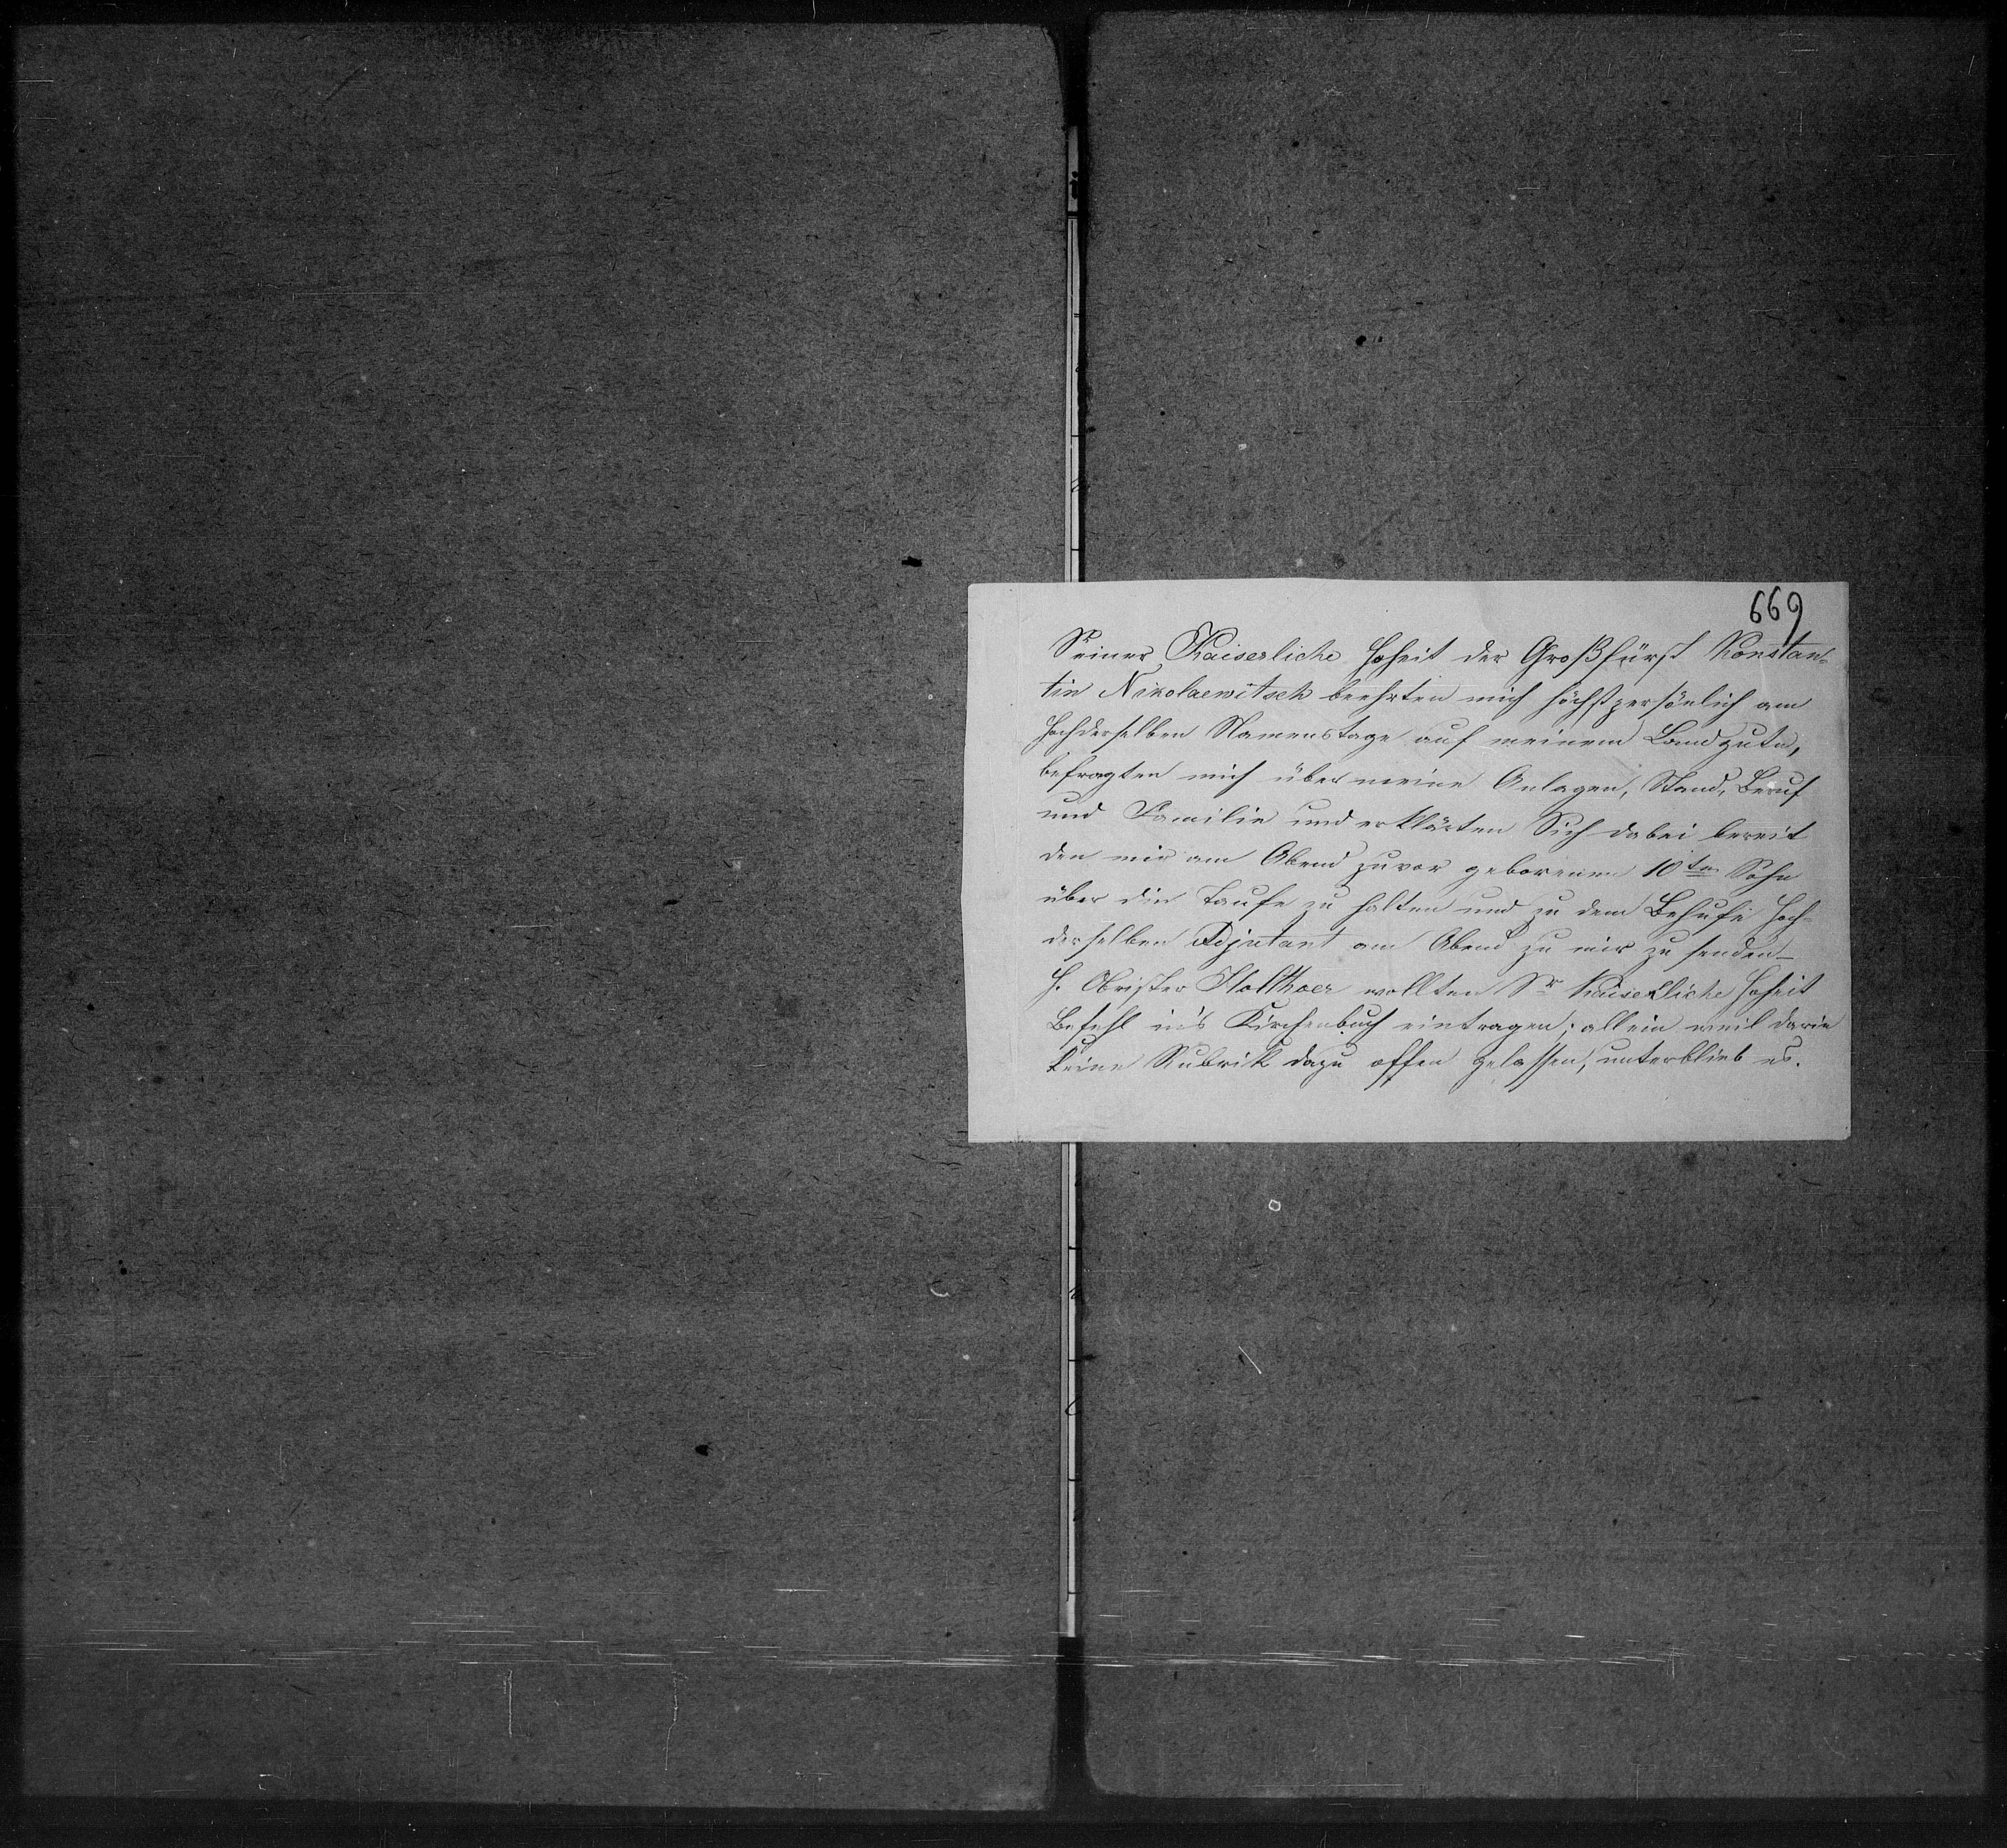 669
Seiner Kaiserliche Hoheit der Großfürst Konstan-
tin Nikolaewitsch beehrten mich höchstpersönlich am
Hochderselben Namenstage auf meinem Landgute,
befragten mich über meine Anlagen, Stand, Beruf
und Familie und erklärten Sich dabei bereit
den mir am Abend zuvor geborenen 10ten Sohn
über die Taufe zu halten und zu dem Behufe Hoch-
derselben Adjutant am Abend zu mir zu senden –
H. Obrister wollten Sr Kaiserliche Hoheit
Befehl in's Kirchenbuch eintragen; allein weil darin
keine Rubrik dazu offen gelassen, unterblieb es.